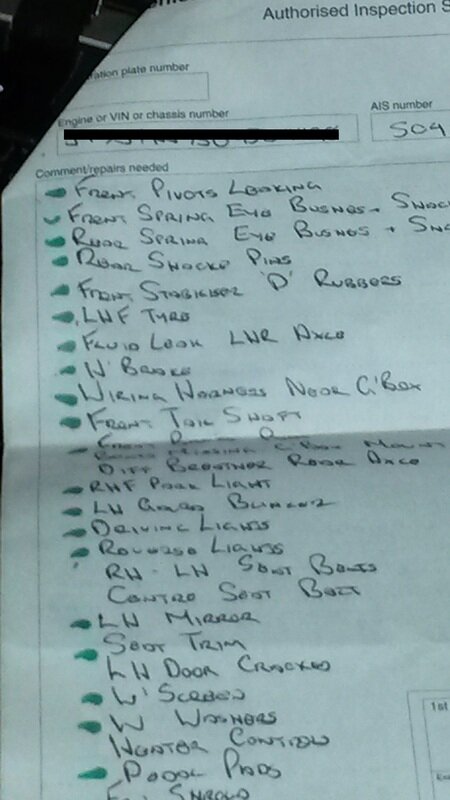 Authorised Inspection S
ration plate number
Engine or VIN or chassis number
AIS number
504
Comment/repairs needed
FRONT PIVOTS LOOKING
FRONT SPRING EYE BUSHES + SHOCK
REAR SPRING EYE BUSHES + SHO
REAR SHOCK PINS
FRONT STABILISER 'D' RUBBERS
LHF TYRE
FLUID LEAK LHR AXLE
H' BRAKE
WIRING HARNESS NEAR G'BOX
FRONT TAIL SHAFT
MISSING MOUNT
DIFF BREATHER REAR AXLE
RHF PARK LIGHT
LH GUARD BLINKER
DRIVING LIGHTS
REVERSE LIGHTS
RH - LH SEAT BELTS
CENTRE SEAT BELT
LH MIRROR
SEAT TRIM
LH DOOR CRACKED
W'SCREEN
W WASHERS
HEATER CONTROL
PEDAL PADS
SHROUD
1st